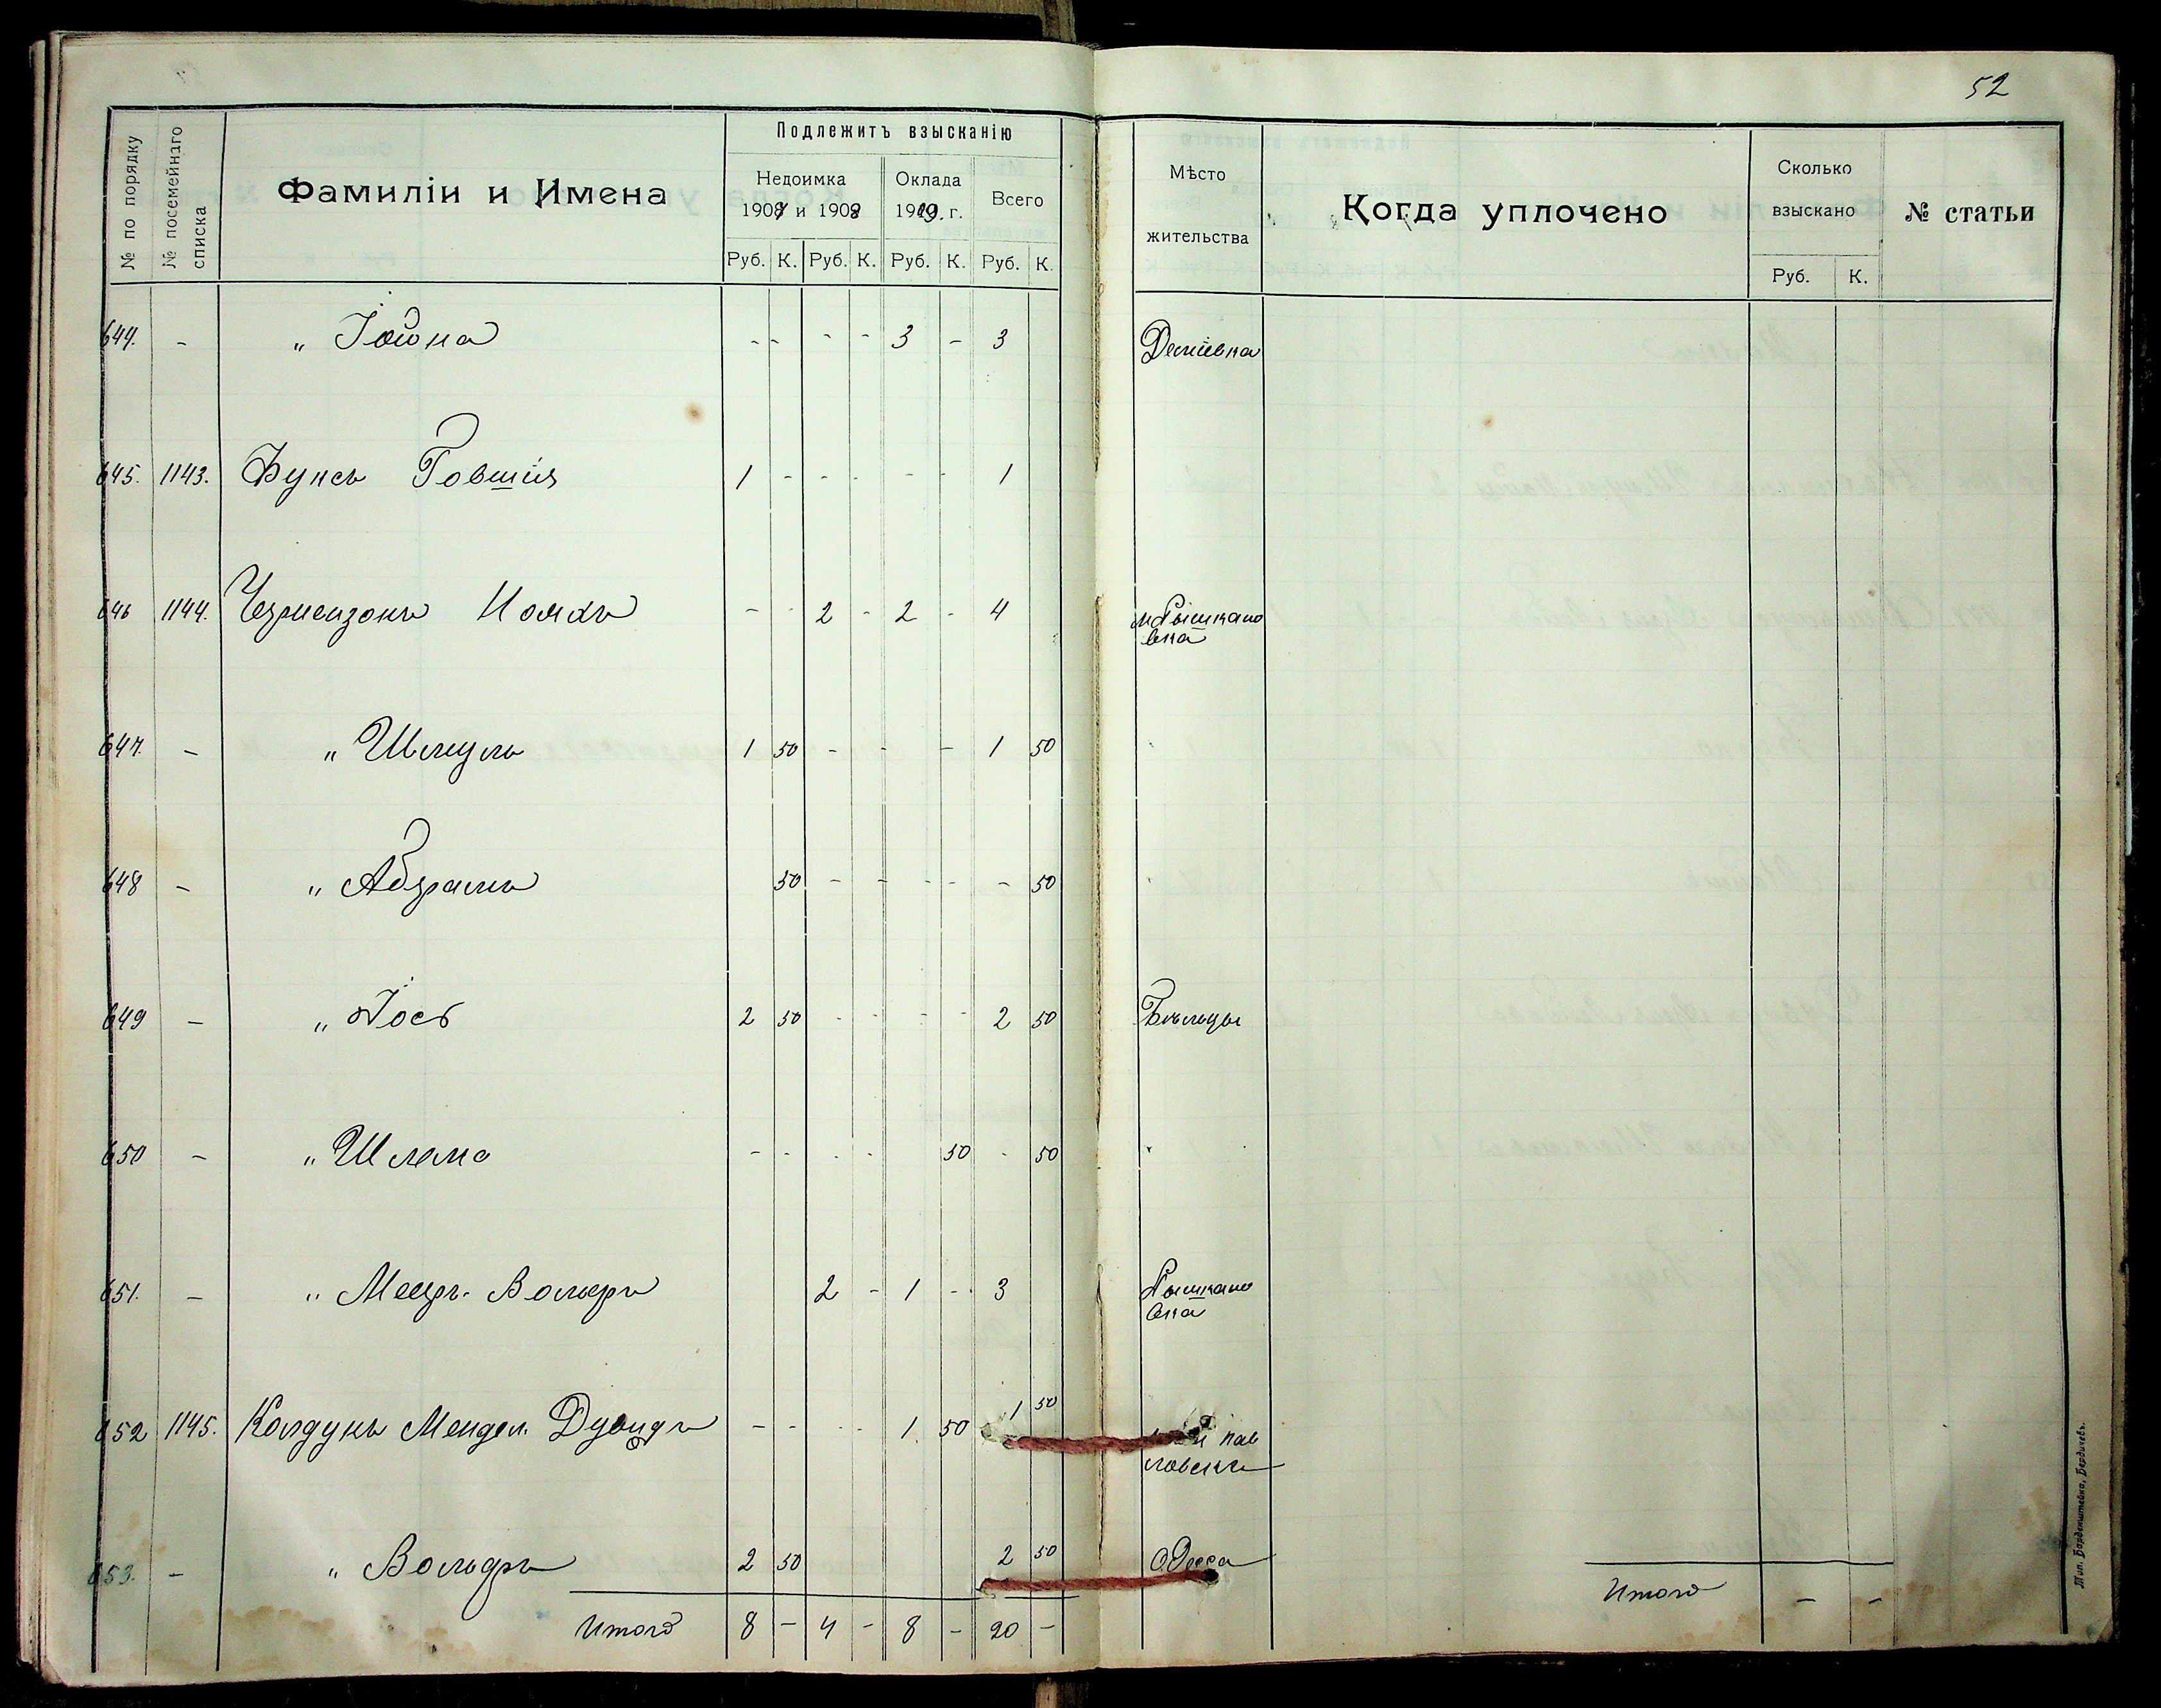 52
№ по порядку
№ посемейнаго списка
Фамиліи и Имена
Подлежитъ взысканію
Недоимка
1907 и 1908
Оклада
1909 г.
Всего
Руб. К. Руб. К. Руб. К. Руб. К.
Мѣсто
жительства
Когда уплочено
Сколько
взыскано
Руб. К.
№ статьи
644. - " Іойна - - - - 3 - 3 Деміевка
645. 1143. Фуксъ Говшія 1 - - - - - 1
646 1144. - - 2 - 2 - 4 м Рышкано
вка
647. - " Шмуль 1 50 - - - 1 50 "
648 - " Абрамъ 50 - - - - - 50 "
649 - " Іось 2 50 - - - - 2 50 Бѣльцы
650 - " Шлема - - - - 50 - 50 "
651. - " Меер. Вольфъ 2 - 1 - - 3 Рышкано
вка
652 1145. Колдунъ Мендел. Дувидъ - - - - 1 50 1 50 пав
ловскъ
653. - " Вольфъ 2 50 2 50 Одесса
Итого 8 - 4 - 8 - 20 -
Итого - -
Тип. Барденштейна, Бердичевъ.